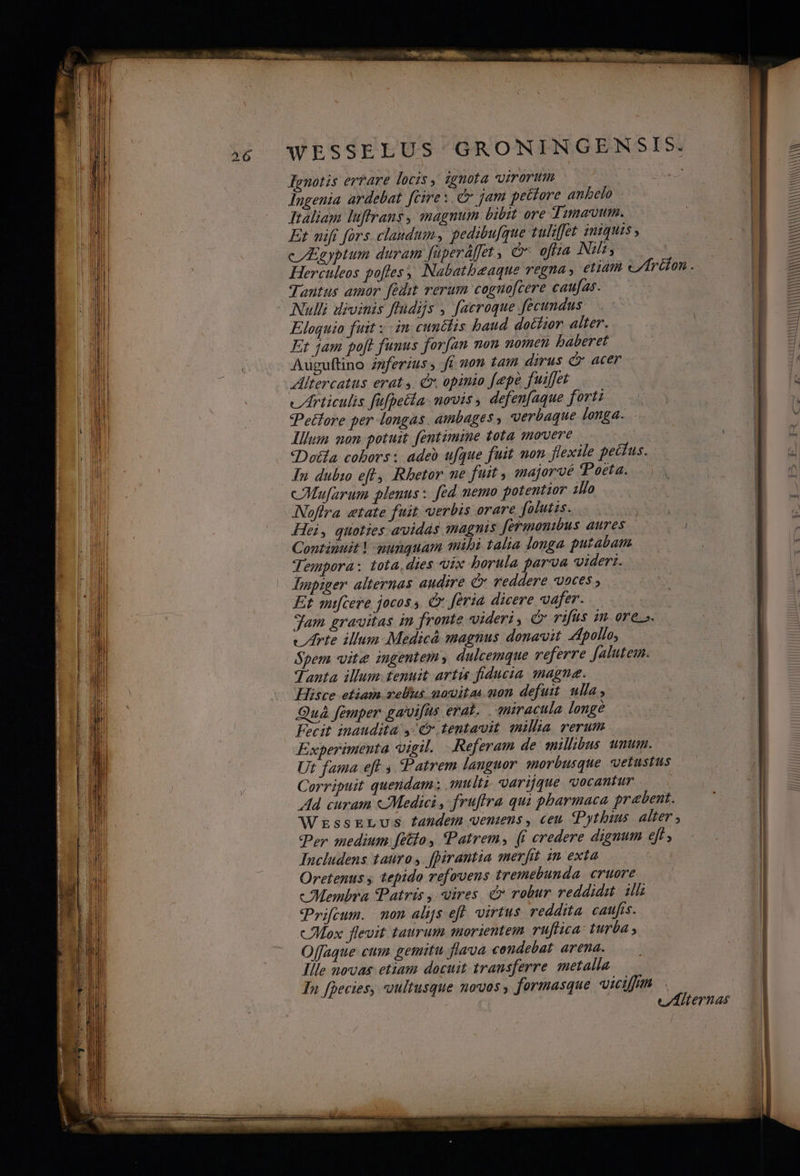 26 WESSELUS GRONINGENSIS.
Ignotis errare locis, ignota virorum
Ingenia ardebat ſcire: & jam pectore anhelo
Italiam luſtrans, magnum bibit ore Timavum.
Et niſi fors claudum, pedibuſque tuliſſet iniquis,
Ægyptum duram ſuperâſſet, & oſtia Nili,
Herculeos poſtes, Nabathæaque regna, etiam Arcton.
Tantus amor ſedit rerum cognoſcere cauſas.
Nulli divinis ſtudijs, ſacroque fecundus
Eloquio fuit: in cunctis haud doctior alter.
Et jam poſt funus forſan non nomen haberet
Auguſtino inferius, ſi non tam dirus & acer
Altercatus erat, & opinio ſæpè fuiſſet
Articulis ſuſpecta novis, defenſaque forti
Pectore per longas ambages, verbaque longa.
Illum non potuit ſentimine tota movere
Docta cohors: adeò uſque fuit non flexile pectus.
In dubio eſt, Rhetor ne fuit, majorvé Poeta.
Muſarum plenus: ſed nemo potentior illo
Noſtra ætate fuit verbis orare ſolutis.
Hei, quoties avidas magnis ſermonibus aures
Continuit! nunquam mihi talia longa putabam
Tempora: tota dies vix horula parva videri.
Impiger alternas audire & reddere voces,
Et miſcere jocos, & ſeria dicere vafer.
Jam gravitas in fronte videri, & riſus in ore.
Arte illum Medicâ magnus donavit Apollo,
Spem vitæ ingentem, dulcemque referre ſalutem.
Tanta illum tenuit artis fiducia magnæ.
Hisce etiam rebus novitas non defuit ulla,
Quâ ſemper gaviſus erat. miracula longè
Fecit inaudita, & tentavit millia rerum
Experimenta vigil. Referam de millibus unum.
Ut fama eſt, Patrem languor morbusque vetustus
Corripuit quendam; multi varijque vocantur
Ad curam Medici, fruſtra qui pharmaca præbent.
WESSELUS tandem veniens, ceu Pythius alter,
Per medium ſecto, Patrem, ſi credere dignum eſt,
Includens tauro, ſpirantia merſit in exta
Oretenus, tepido refovens tremebunda cruore
Membra Patris, vires & robur reddidit illi
Priſcum. non alijs eſt virtus reddita cauſis.
Mox flevit taurum morientem ruſtica turba,
Oſſaque cum gemitu flava condebat arena.
Ille novas etiam docuit transferre metalla
In ſpecies, vultusque novos, formasque viciſſim
Alternas